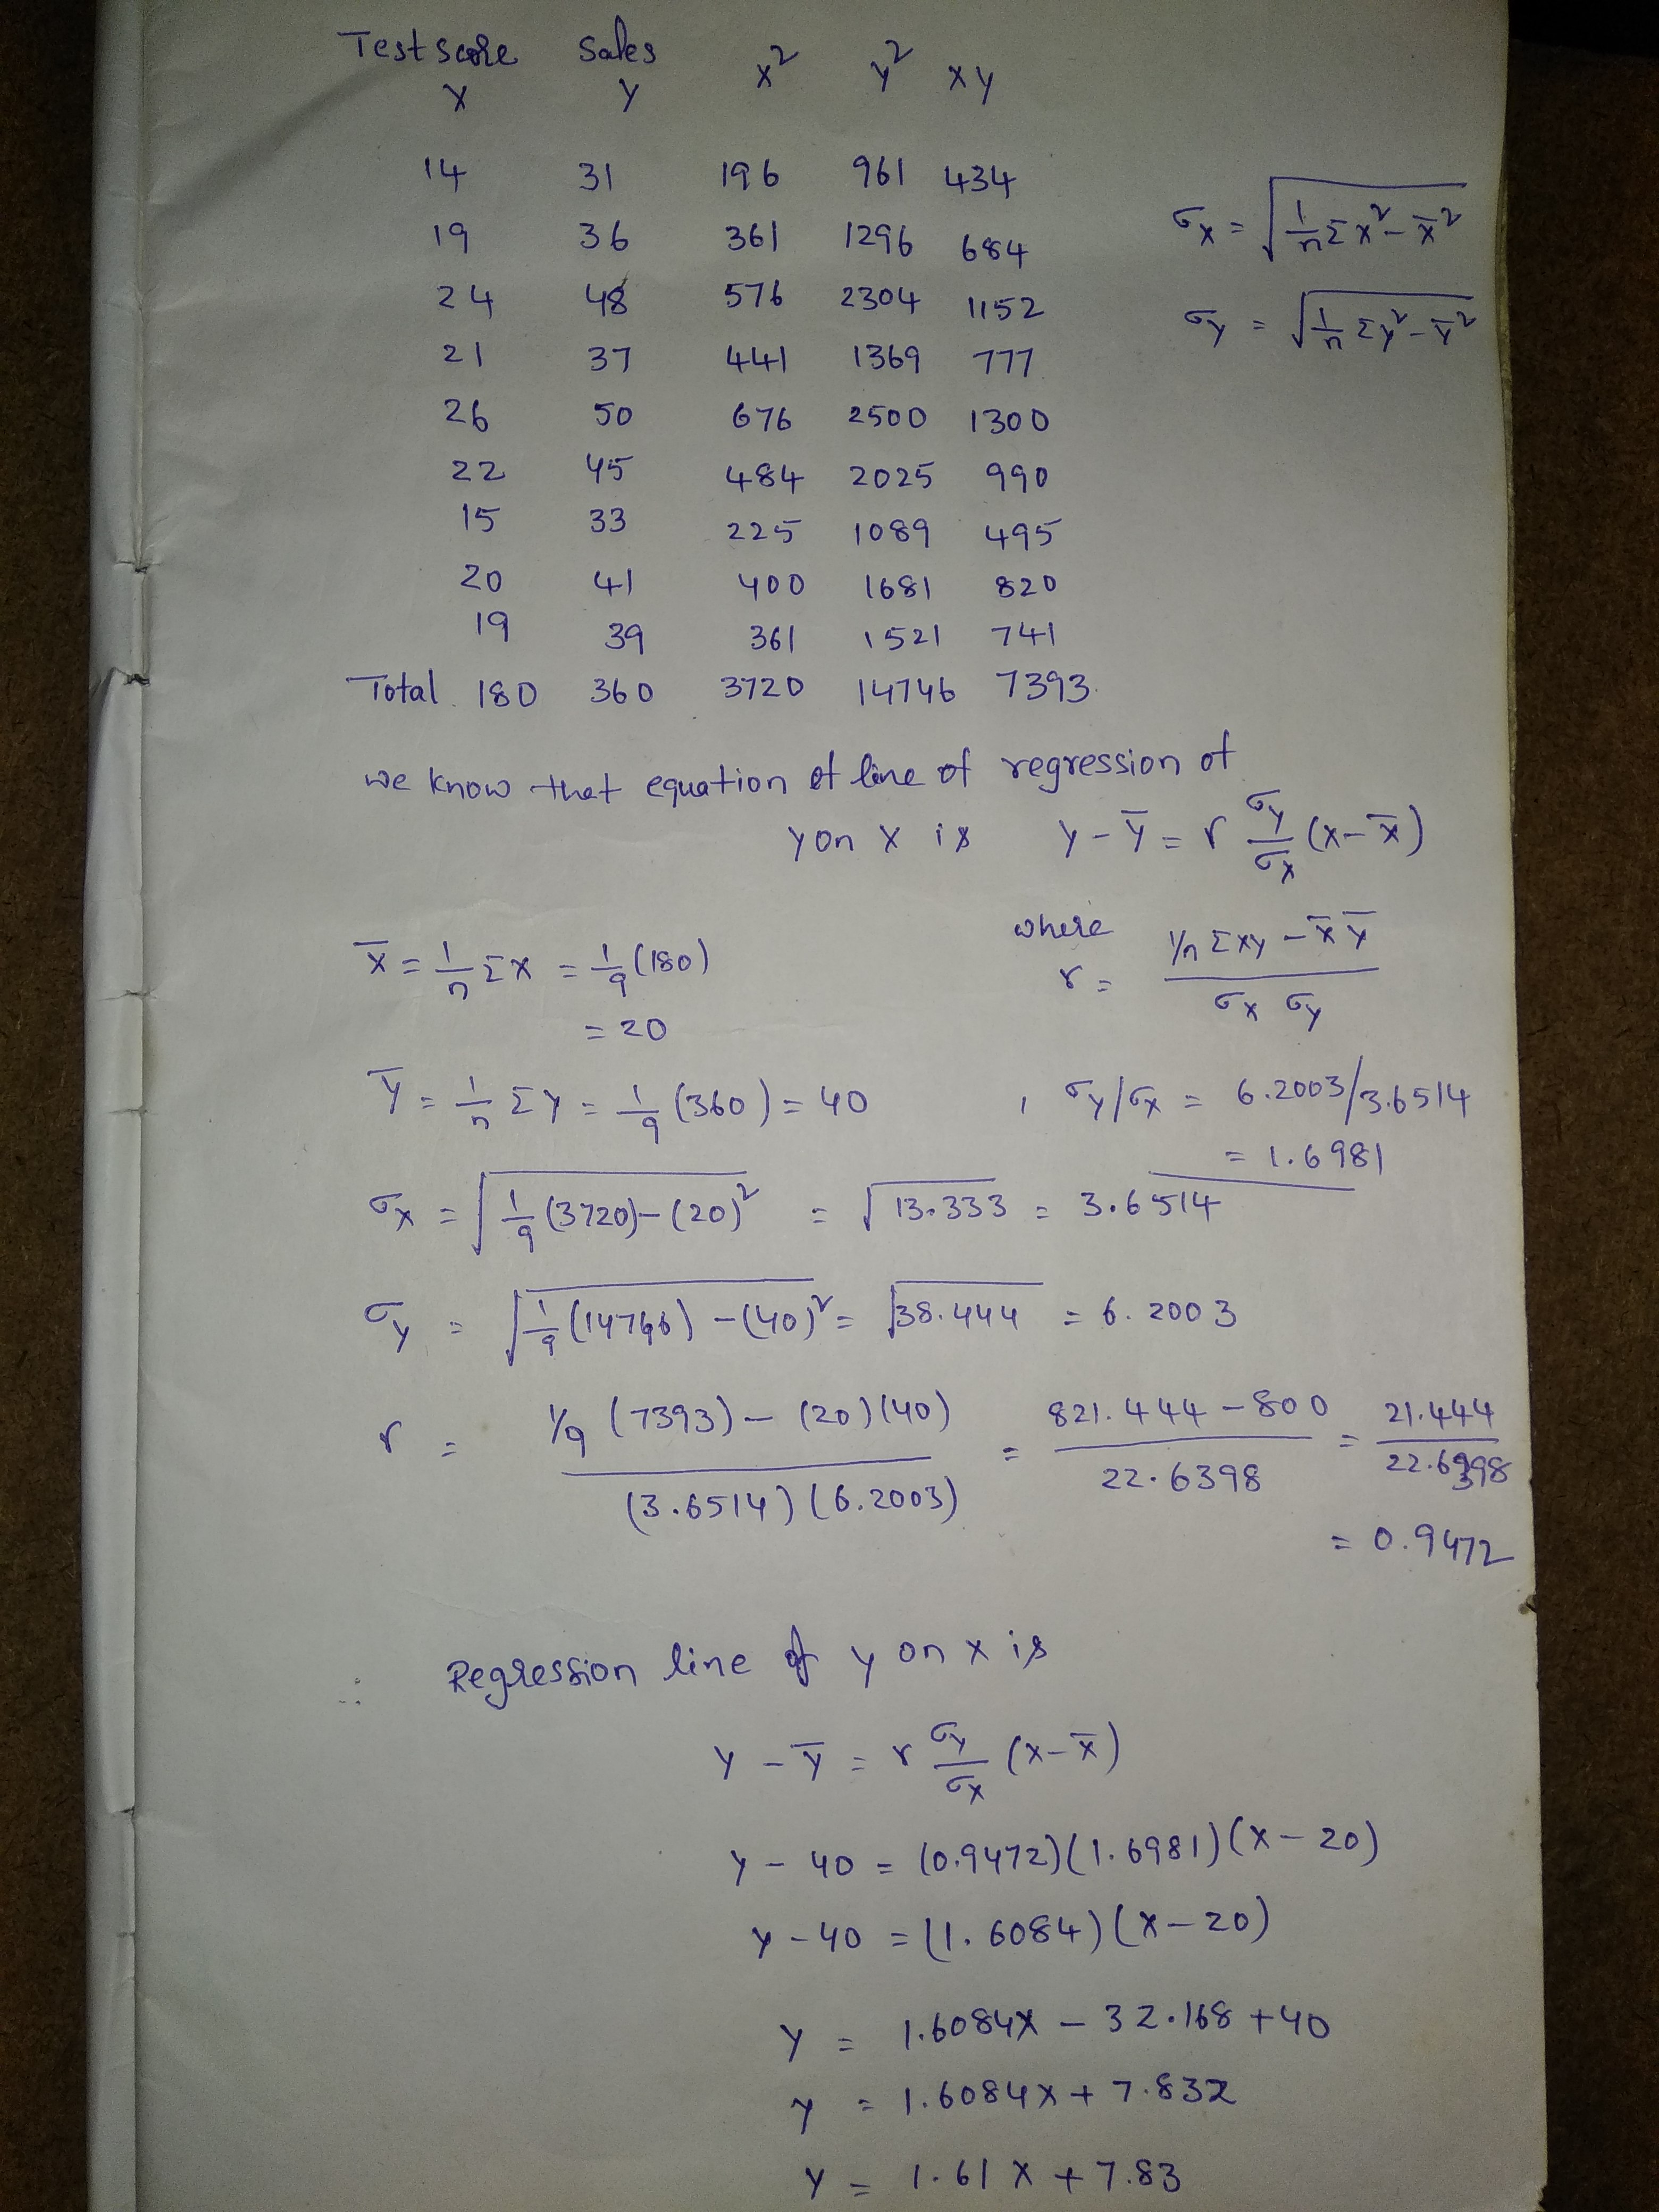 Test score Sales x² y² xy
x y
14 31 196 961 434
19 36 361 1296 684
24 48 576 2304 1152
21 37 441 1369 777
26 50 676 2500 1300
22 45 484 2025 990
15 33 225 1089 495
20 41 400 1681 820
19 39 361 1521 741
Total 180 360 3720 14746 7393
σx = √(1/n Σx² - x̄²)
σy = √(1/n Σy² - ȳ²)
we know that equation of line of regression of
y on x is y - ȳ = r σy/σx (x - x̄)
where
r = (1/n Σxy - x̄ ȳ)/(σx σy)
x̄ = 1/n Σx = 1/9 (180)
= 20
ȳ = 1/n Σy = 1/9 (360) = 40 , σy/σx = 6.2003/3.6514
= 1.6981
σx = √(1/9 (3720) - (20)²) = √13.333 = 3.6514
σy = √(1/9 (14746) - (40)²) = √38.444 = 6.2003
r = (1/9 (7393) - (20)(40))/((3.6514)(6.2003)) = (821.444 - 800)/22.6398 = 21.444/22.6398
= 0.9472
∴ Regression line of y on x is
y - ȳ = r σy/σx (x - x̄)
y - 40 = (0.9472)(1.6981)(x - 20)
y - 40 = (1.6084)(x - 20)
y = 1.6084x - 32.168 + 40
y = 1.6084x + 7.832
y = 1.61x + 7.83